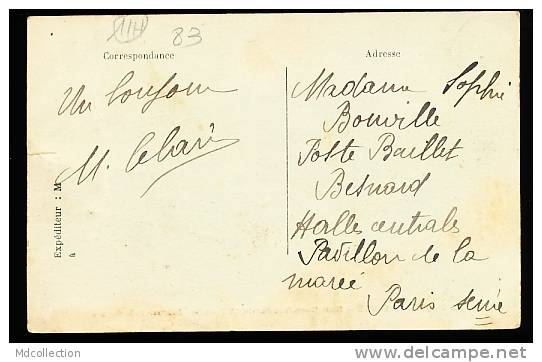 83
Correspondance
Adresse
Un bonjour
M.
Expéditeur : M
à
Madame Sophie
Bonville
Poste Baillet
Besnard
Halles centrales
Pavillon de la
marée
Paris
Mdcollection
www.delcampe.net